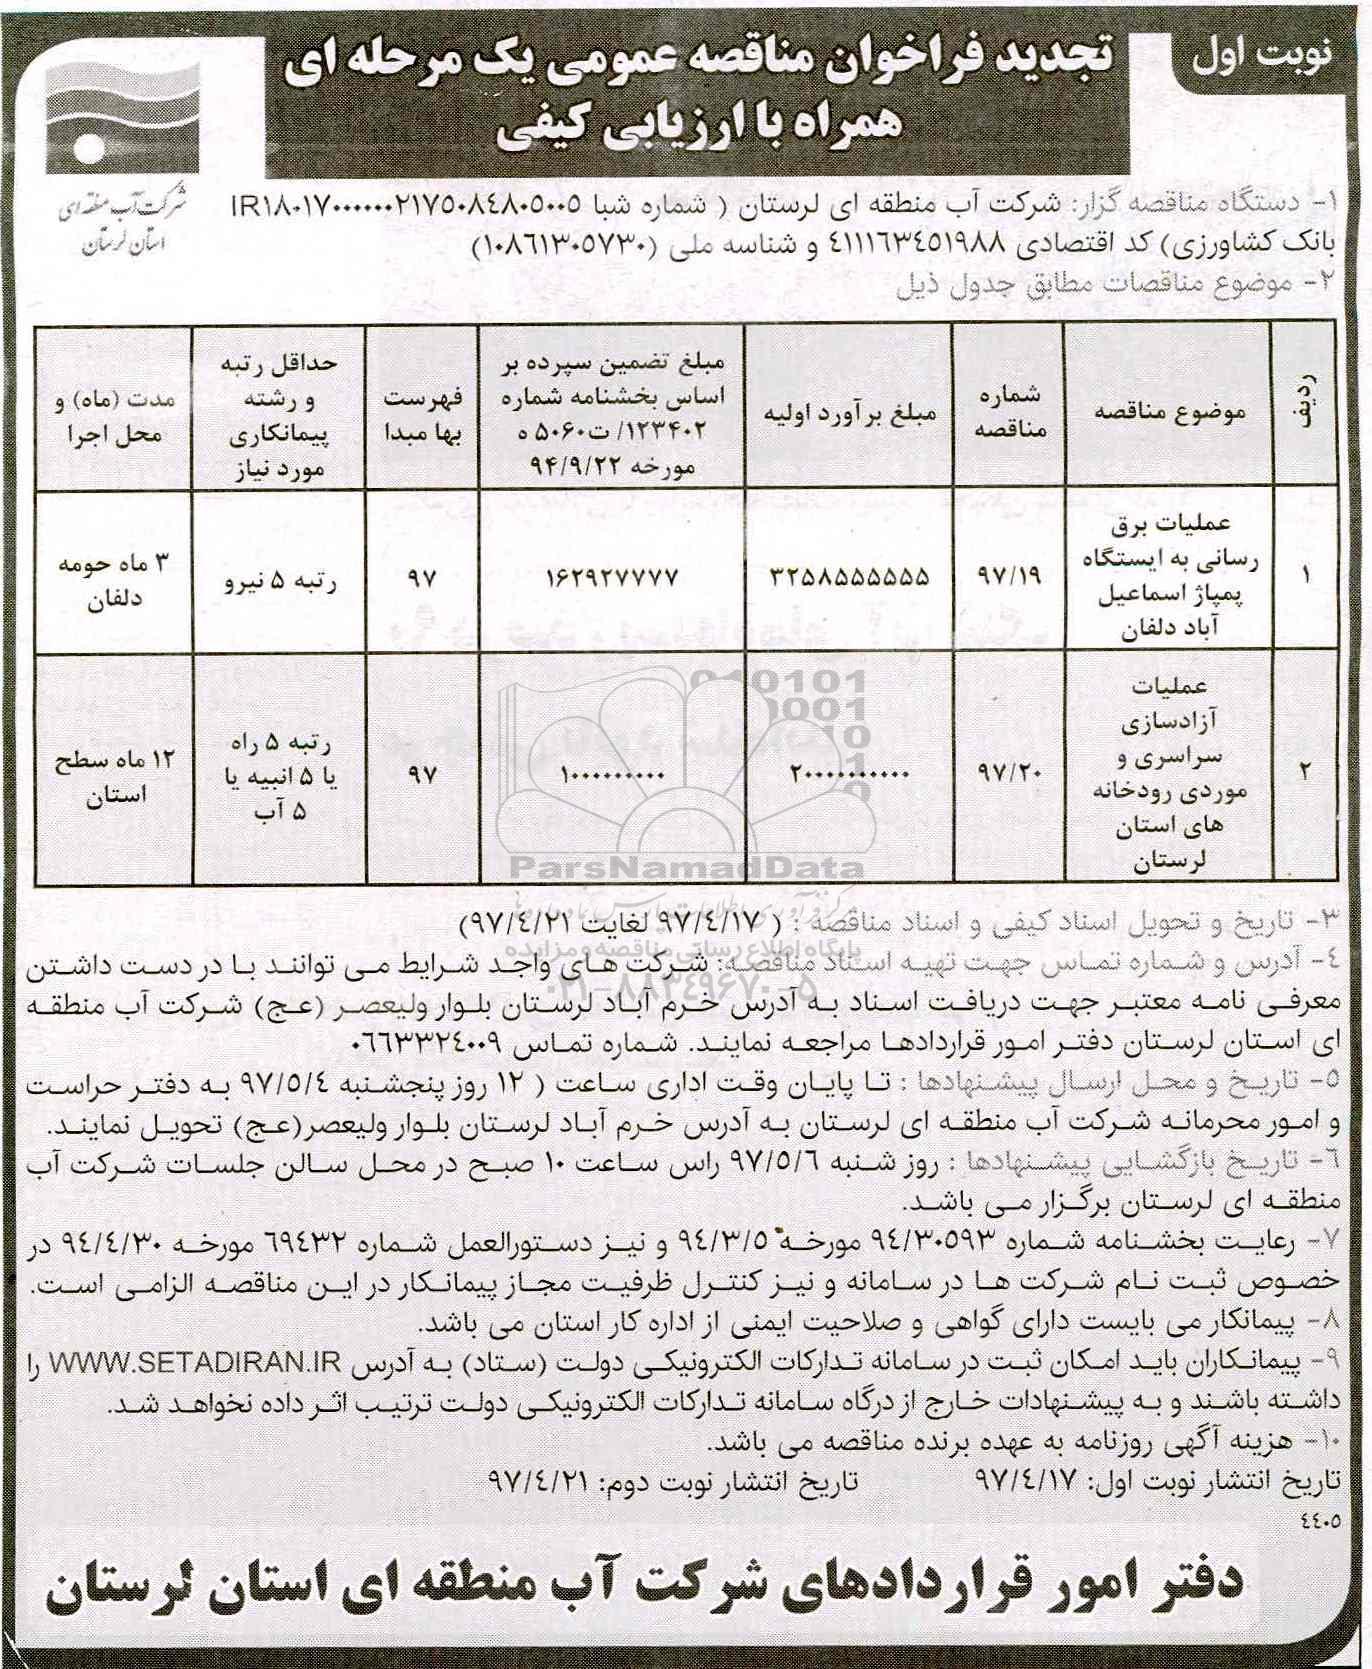 نوبت اول
تجدید فراخوان مناقصه عمومی یک مرحله ای
همراه با ارزیابی کیفی
شرکت آب منطقه ای
استان لرستان
۱- دستگاه مناقصه گزار: شرکت آب منطقه ای لرستان ( شماره شبا IR۱۸۰۱۷۰۰۰۰۰۰۰۲۱۷۵۰۸٤۸۰۵۰۰۵
بانک کشاورزی) کد اقتصادی ٤۱۱۱٦۳٤۵۱۹۸۸ و شناسه ملی (۱۰۸٦۱۳۰۵۷۳۰)
۲- موضوع مناقصات مطابق جدول ذیل
ردیف | موضوع مناقصه | شماره مناقصه | مبلغ برآورد اولیه | مبلغ تضمین سپرده بر اساس بخشنامه شماره ۱۲۳۴۰۲/ ت۵۰۶۰ ه مورخه ۹۴/۹/۲۲ | فهرست بها مبدا | حداقل رتبه و رشته پیمانکاری مورد نیاز | مدت (ماه) و محل اجرا
۱ | عملیات برق رسانی به ایستگاه پمپاژ اسماعیل آباد دلفان | ۹۷/۱۹ | ۳۲۵۸۵۵۵۵۵۵ | ۱۶۲۹۲۷۷۷۷ | ۹۷ | رتبه ۵ نیرو | ۳ ماه حومه دلفان
۲ | عملیات آزادسازی سراسری و موردی رودخانه های استان لرستان | ۹۷/۲۰ | ۲۰۰۰۰۰۰۰۰۰۰ | ۱۰۰۰۰۰۰۰۰۰ | ۹۷ | رتبه ۵ راه یا ۵ انبیه یا ۵ آب | ۱۲ ماه سطح استان
ParsNamadData
پایگاه اطلاع رسانی مناقصه و مزایده
۰۲۱-۸۸۳۴۹۶۷۰-۵
۳- تاریخ و تحویل اسناد کیفی و اسناد مناقصه : ( ۹۷/٤/۱۷ لغایت ۹۷/٤/۲۱)
٤- آدرس و شماره تماس جهت تهیه اسناد مناقصه: شرکت های واجد شرایط می توانند با در دست داشتن
معرفی نامه معتبر جهت دریافت اسناد به آدرس خرم آباد لرستان بلوار ولیعصر (عج) شرکت آب منطقه
ای استان لرستان دفتر امور قراردادها مراجعه نمایند. شماره تماس ۰٦٦۳۳۲٤۰۰۹
۵- تاریخ و محل ارسال پیشنهادها : تا پایان وقت اداری ساعت ( ۱۲ روز پنجشنبه ۹۷/۵/٤ به دفتر حراست
و امور محرمانه شرکت آب منطقه ای لرستان به آدرس خرم آباد لرستان بلوار ولیعصر(عج) تحویل نمایند.
٦- تاریخ بازگشایی پیشنهادها : روز شنبه ۹۷/۵/٦ راس ساعت ۱۰ صبح در محل سالن جلسات شرکت آب
منطقه ای لرستان برگزار می باشد.
۷- رعایت بخشنامه شماره ۹٤/۳۰۵۹۳ مورخه ۹٤/۳/۵ و نیز دستورالعمل شماره ٦۹٤۳۲ مورخه ۹٤/٤/۳۰ در
خصوص ثبت نام شرکت ها در سامانه و نیز کنترل ظرفیت مجاز پیمانکار در این مناقصه الزامی است.
۸- پیمانکار می بایست دارای گواهی و صلاحیت ایمنی از اداره کار استان می باشد.
۹- پیمانکاران باید امکان ثبت در سامانه تدارکات الکترونیکی دولت (ستاد) به آدرس WWW.SETADIRAN.IR را
داشته باشند و به پیشنهادات خارج از درگاه سامانه تدارکات الکترونیکی دولت ترتیب اثر داده نخواهد شد.
۱۰- هزینه آگهی روزنامه به عهده برنده مناقصه می باشد.
تاریخ انتشار نوبت اول: ۹۷/٤/۱۷ تاریخ انتشار نوبت دوم: ۹۷/٤/۲۱
٤٤۰۵
دفتر امور قراردادهای شرکت آب منطقه ای استان لرستان